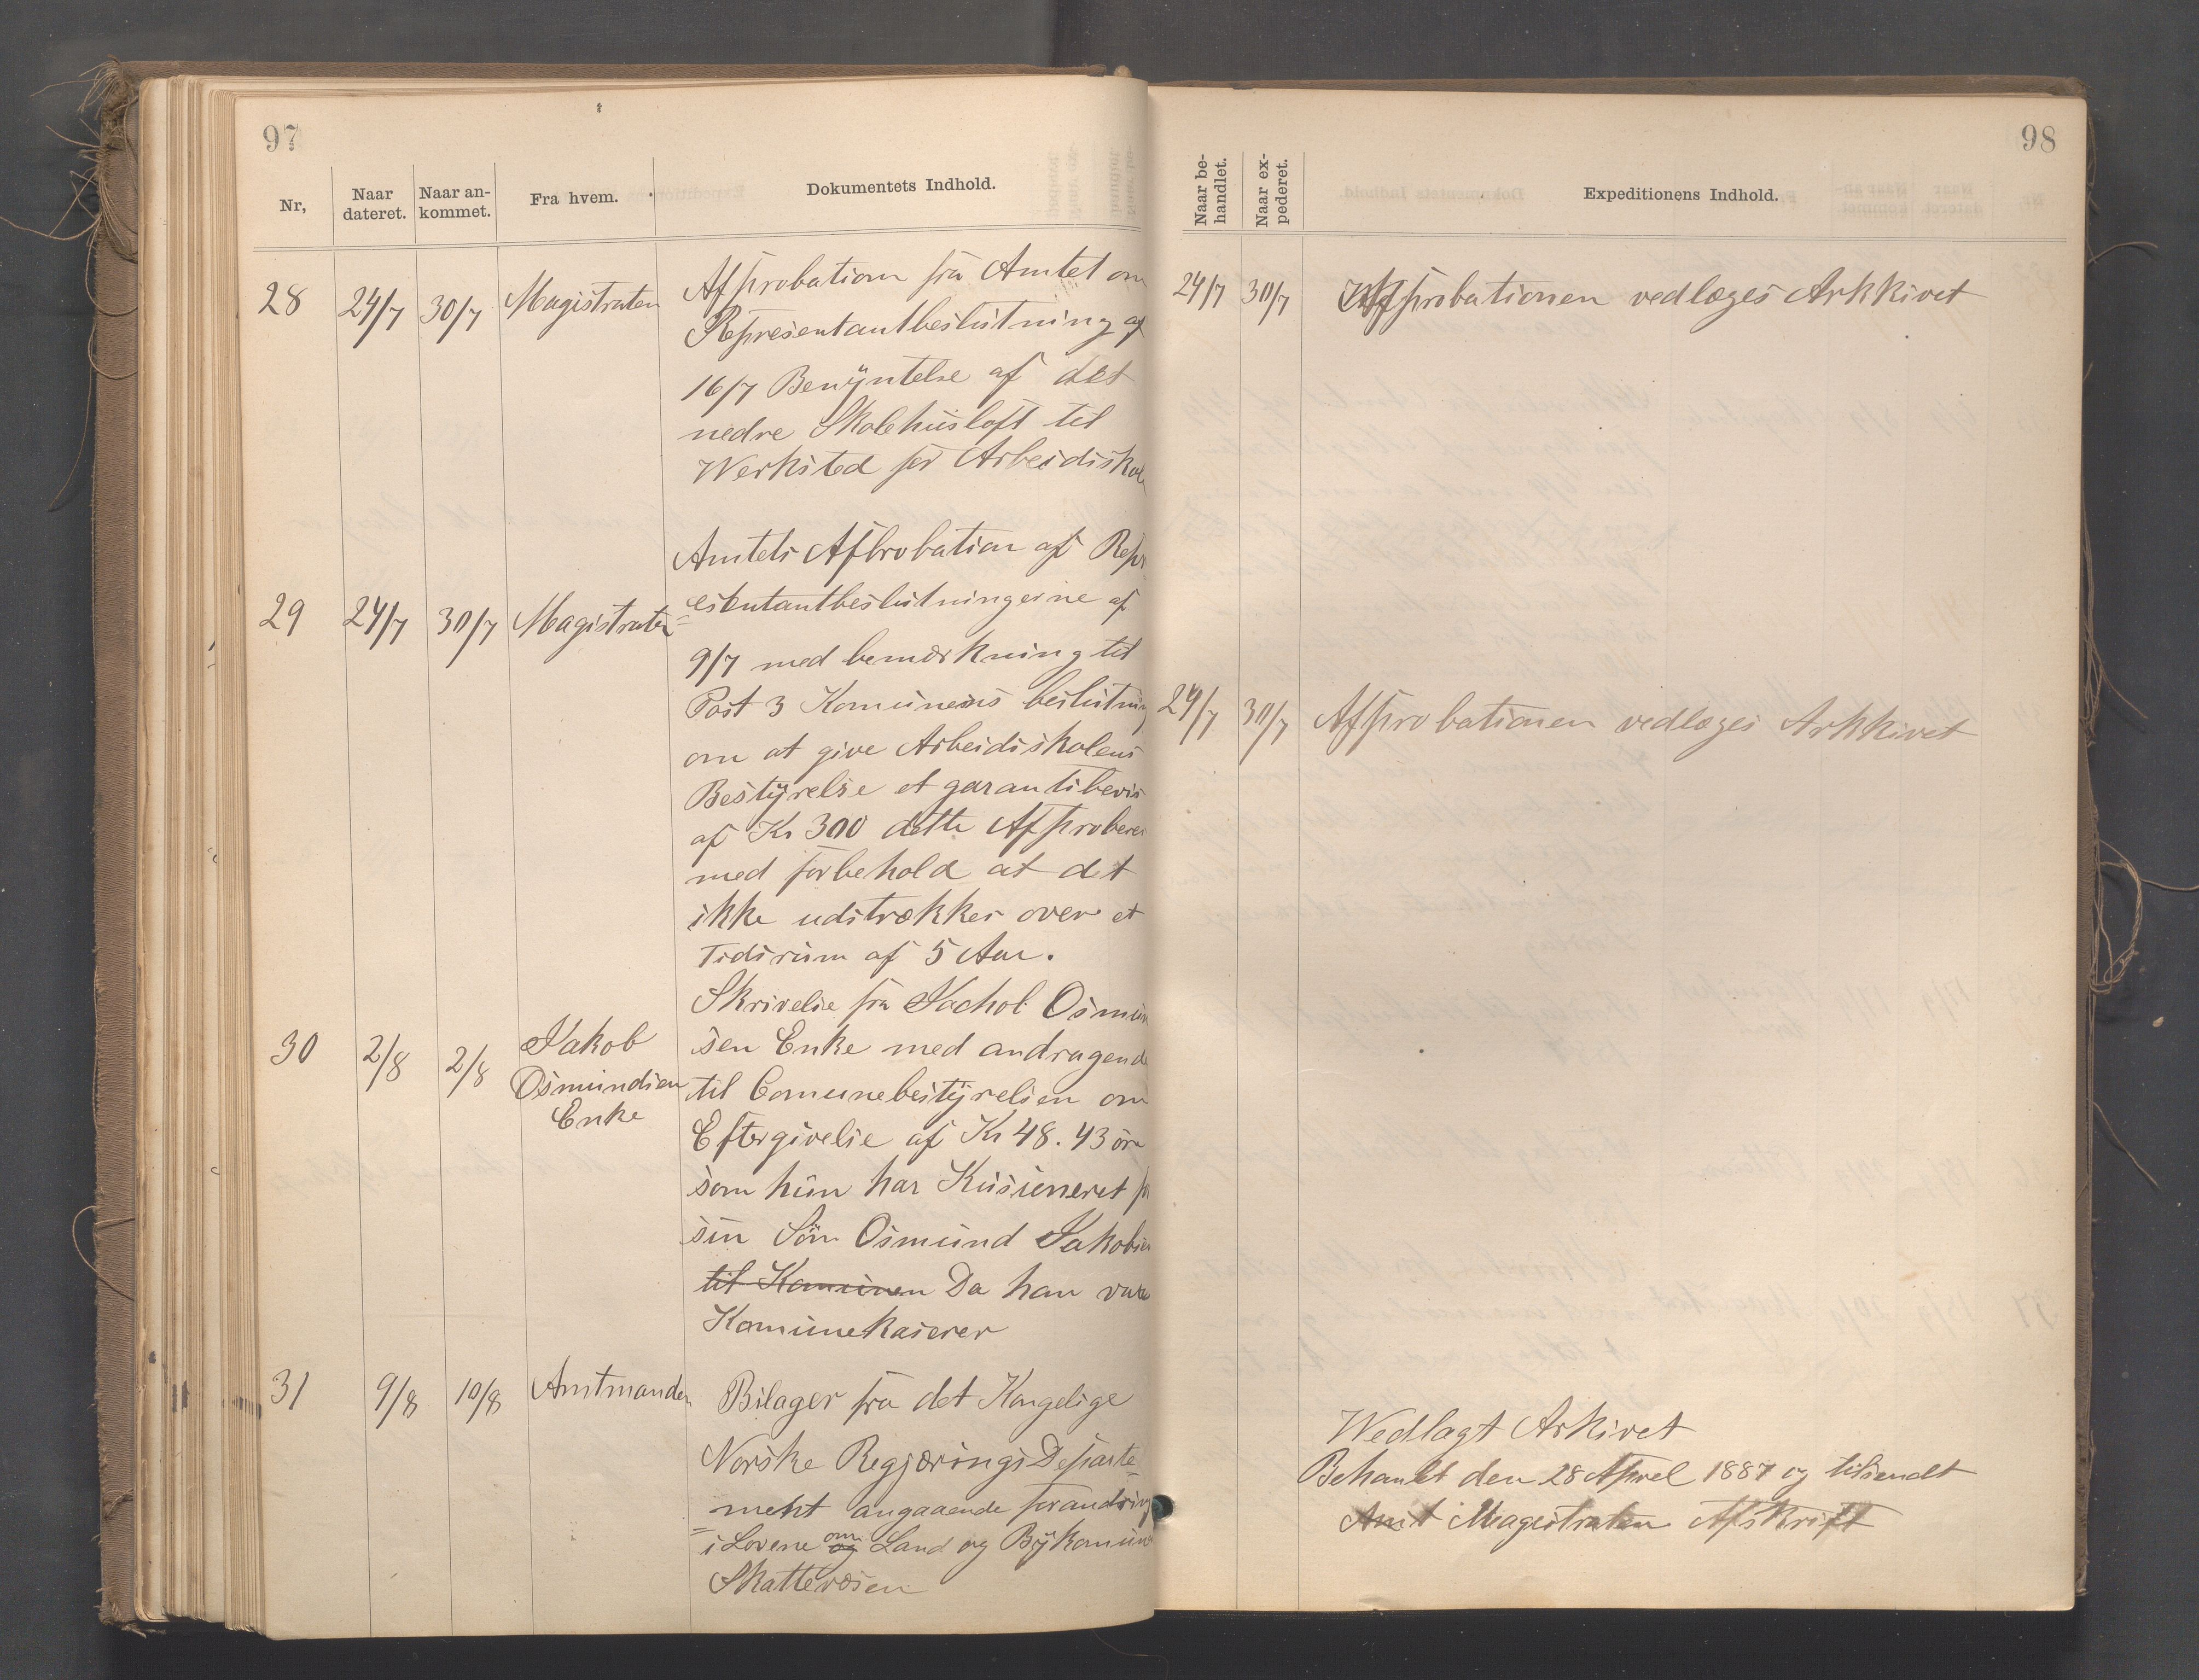 97
Nr, Naar dateret. Naar an-kommet. Fra hvem. Dokumentets Indhold.
28 24/7 30/7 Magistraten Afprobation fra Amtet om
Representantbeslutning af
16/7 Benÿntelse af det
nedre Skolehusloft til
Werksted for Arbeidsskole
Amtets Afbrobation af Repr
29 24/7 30/7 Magistraten esentantbeslutningerne af
9/7 med bemærkning til
Post 3 Komunens beslutning
om at give Arbeidsskolens
Bestÿrelse et garantibevis
af Kr 300 dette Afproberes
med forbehold at det
ikke udstrækker over et
Tidsrum af 5 Aar.
Skrivelse fra Jachob Osmun
30 2/8 2/8 Jakob Osmundsen Enke sen Enke med andragende
til Comunebestÿrelsen om
Eftergivelse af Kr 48.43 öre
som hun har Kusioneret for
sin Sön Osmund Jakobsen
til Komunen Da han var
Komunekaserer
31 9/8 10/8 Amtmanden Bilager fra det Kongelige
Norske Regjærings Departe-
ment angaaende forandring
i Lovene og om Land og Bÿkomun
Skattevæsen
98
Naar be-handlet. Naar ex-pederet. Expeditionens Indhold.
24/7 30/7 Afprobationen vedlæges Arkkivet
24/7 30/7 Afprobationen vedlæges Arkkivet
Wedlagt Arkivet
Behanlet den 28 Aprel 1887 og tilsendt
Amt Magistraten Afskrift